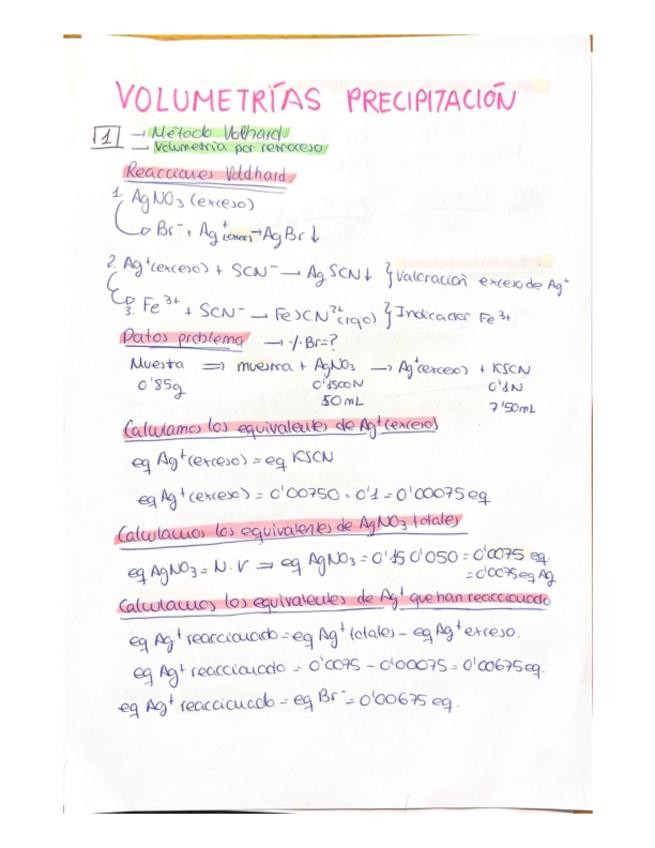 VOLUMETRÍAS PRECIPITACIÓN
1 → Método Volhard
→ Volumetría por retroceso
Reacciones Voldhard
1. AgNO3 (exceso)
Br⁻ + Ag⁺(exceso) → AgBr ↓
2. Ag⁺(exceso) + SCN⁻ → AgSCN↓ } Valoración exceso de Ag⁺
3. Fe³⁺ + SCN⁻ → FeSCN²⁺ (rojo) } Indicador Fe³⁺
Datos problema → % Br = ?
Muesta ⇒ muestra + AgNO3 → Ag⁺(exceso) + KSCN
0'85g 0'1500N 0'1N
50mL 7'50mL
Calculamos los equivalentes de Ag⁺(exceso)
eq Ag⁺(exceso) = eq KSCN
eq Ag⁺(exceso) = 0'00750 · 0'1 = 0'00075 eq
Calculamos los equivalentes de AgNO3 totales
eq AgNO3 = N·V ⇒ eq AgNO3 = 0'15 0'050 = 0'0075 eq.
= 0'0075 eq Ag
Calculamos los equivalentes de Ag⁺ que han reaccionado
eq Ag⁺ reaccionado = eq Ag⁺ totales - eq Ag⁺ exceso.
eq Ag⁺ reaccionado = 0'0075 - 0'00075 = 0'00675 eq.
eq Ag⁺ reaccionado = eq Br⁻ = 0'00675 eq.